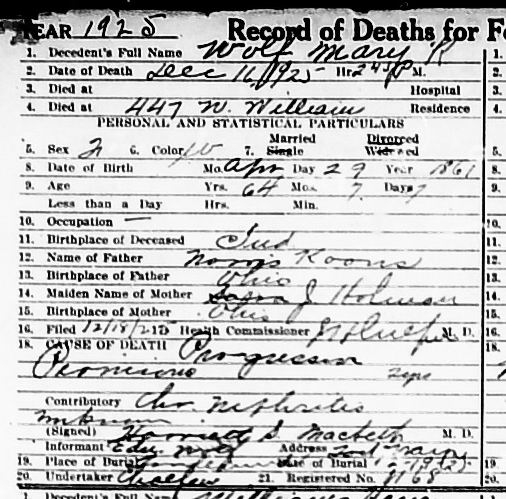 YEAR 1925 Record of Deaths for
1. Decedent's Full Name Wolf Mary R
2. Date of Death Dec 16, 1925 Hr. 245 P M.
3. Died at Hospital
4. Died at 447 W. Williams Residence
PERSONAL AND STATISTICAL PARTICULARS
Married Divorced
5. Sex F 6. Color W 7. Single Widowed
8. Date of Birth Mo. Apr Day 29 Year 1861
9. Age Yrs. 64 Mos. 7 Days
Less than a Day Hrs. Min.
10. Occupation —
11. Birthplace of Deceased Ind
12. Name of Father Norris Koons
13. Birthplace of Father Ohio
14. Maiden Name of Mother J Holman
15. Birthplace of Mother Ohio
16. Filed 12/18/25 Health Commissioner M. D.
18. CAUSE OF DEATH Progressive
Pernicious
Contributory Chr. Nephritis
unknown
(Signed) Harriett S. Macbeth M. D.
Informant Edw Wolf Address Fort Wayne
19. Place of Burial Date of Burial
20. Undertaker 21. Registered No. 1168
1. Decedent's Full Name